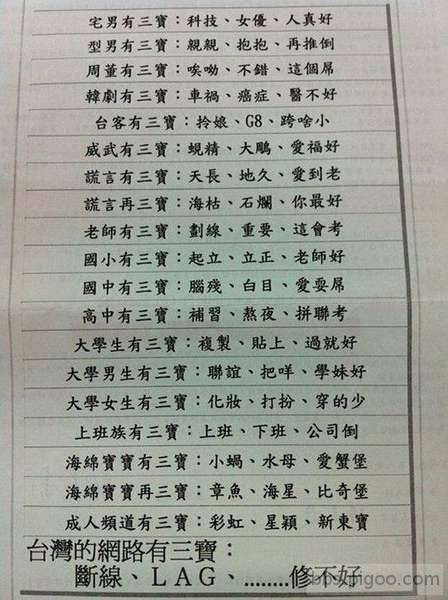 宅男有三寶：科技、女優、人真好
型男有三寶：親親、抱抱、再推倒
周董有三寶：唉呦、不錯、這個屌
韓劇有三寶：車禍、癌症、醫不好
台客有三寶：拎娘、G8、跨啥小
威武有三寶：蜆精、大鵰、愛福好
謊言有三寶：天長、地久、愛到老
謊言再三寶：海枯、石爛、你最好
老師有三寶：劃線、重要、這會考
國小有三寶：起立、立正、老師好
國中有三寶：腦殘、白目、愛耍屌
高中有三寶：補習、熬夜、拼聯考
大學生有三寶：複製、貼上、過就好
大學男生有三寶：聯誼、把咩、學妹好
大學女生有三寶：化妝、打扮、穿的少
上班族有三寶：上班、下班、公司倒
海綿寶寶有三寶：小蝸、水母、愛蟹堡
海綿寶寶再三寶：章魚、海星、比奇堡
成人頻道有三寶：彩虹、星穎、新東寶
台灣的網路有三寶：
斷線、LAG、........修不好